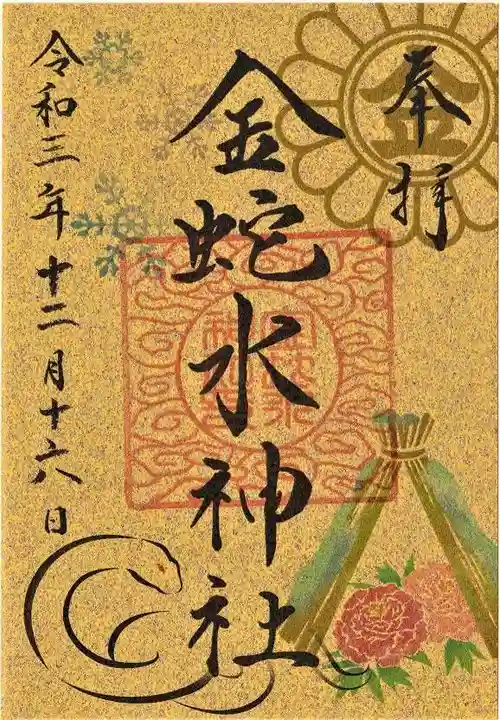 奉拝
金
金蛇水神社
令和三年十二月十六日